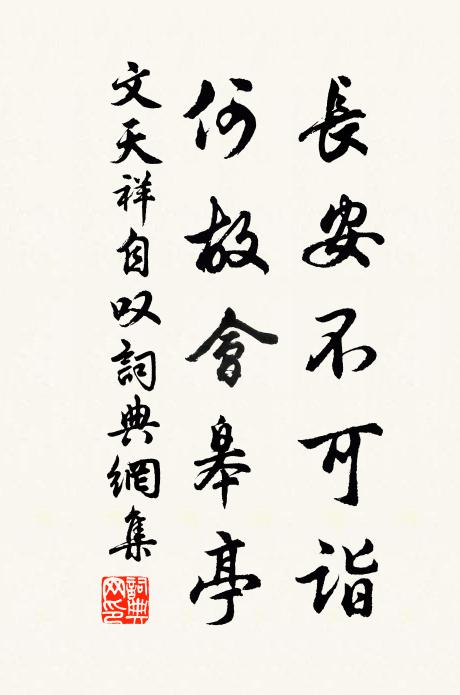 長安不可詣
何故會皋亭
文天祥自叹詞典網集
詞典
网印